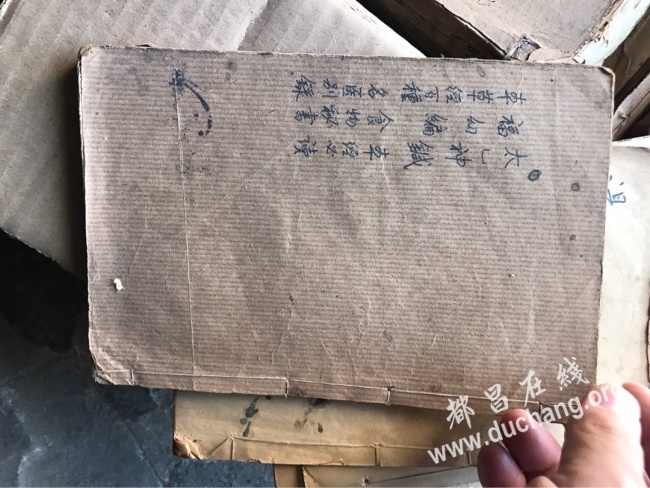 太乙神鍼 本經必讀
福幼編 食物秘書
本草經百種 名醫别錄
都昌在线
www.duchang.org